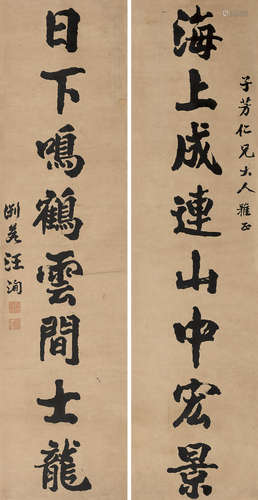 子芳仁兄大人雅正
海上成連山中宏景
日下鳴鶴雲間士龍
渊若汪洵